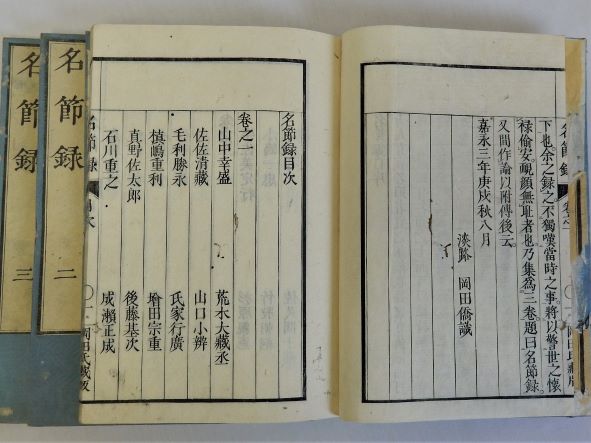 下也余之録之不獨嘆當時之事將以警世之懐
禄偷安靦顔無耻者也乃集為三卷題曰名節録
又間作論以附傳後云
嘉永三年庚戌秋八月
淡路 岡田僑識
名節録目次
卷之一
山中幸盛 荒木大藏丞
佐佐清藏 山口小辨
毛利勝永 氏家行廣
槙嶋重利 增田宗重
真野佐太郎 後藤基次
石川重之 成瀬正成
名節録 目次 一 岡田氏藏板
名節録 二
名節録 三